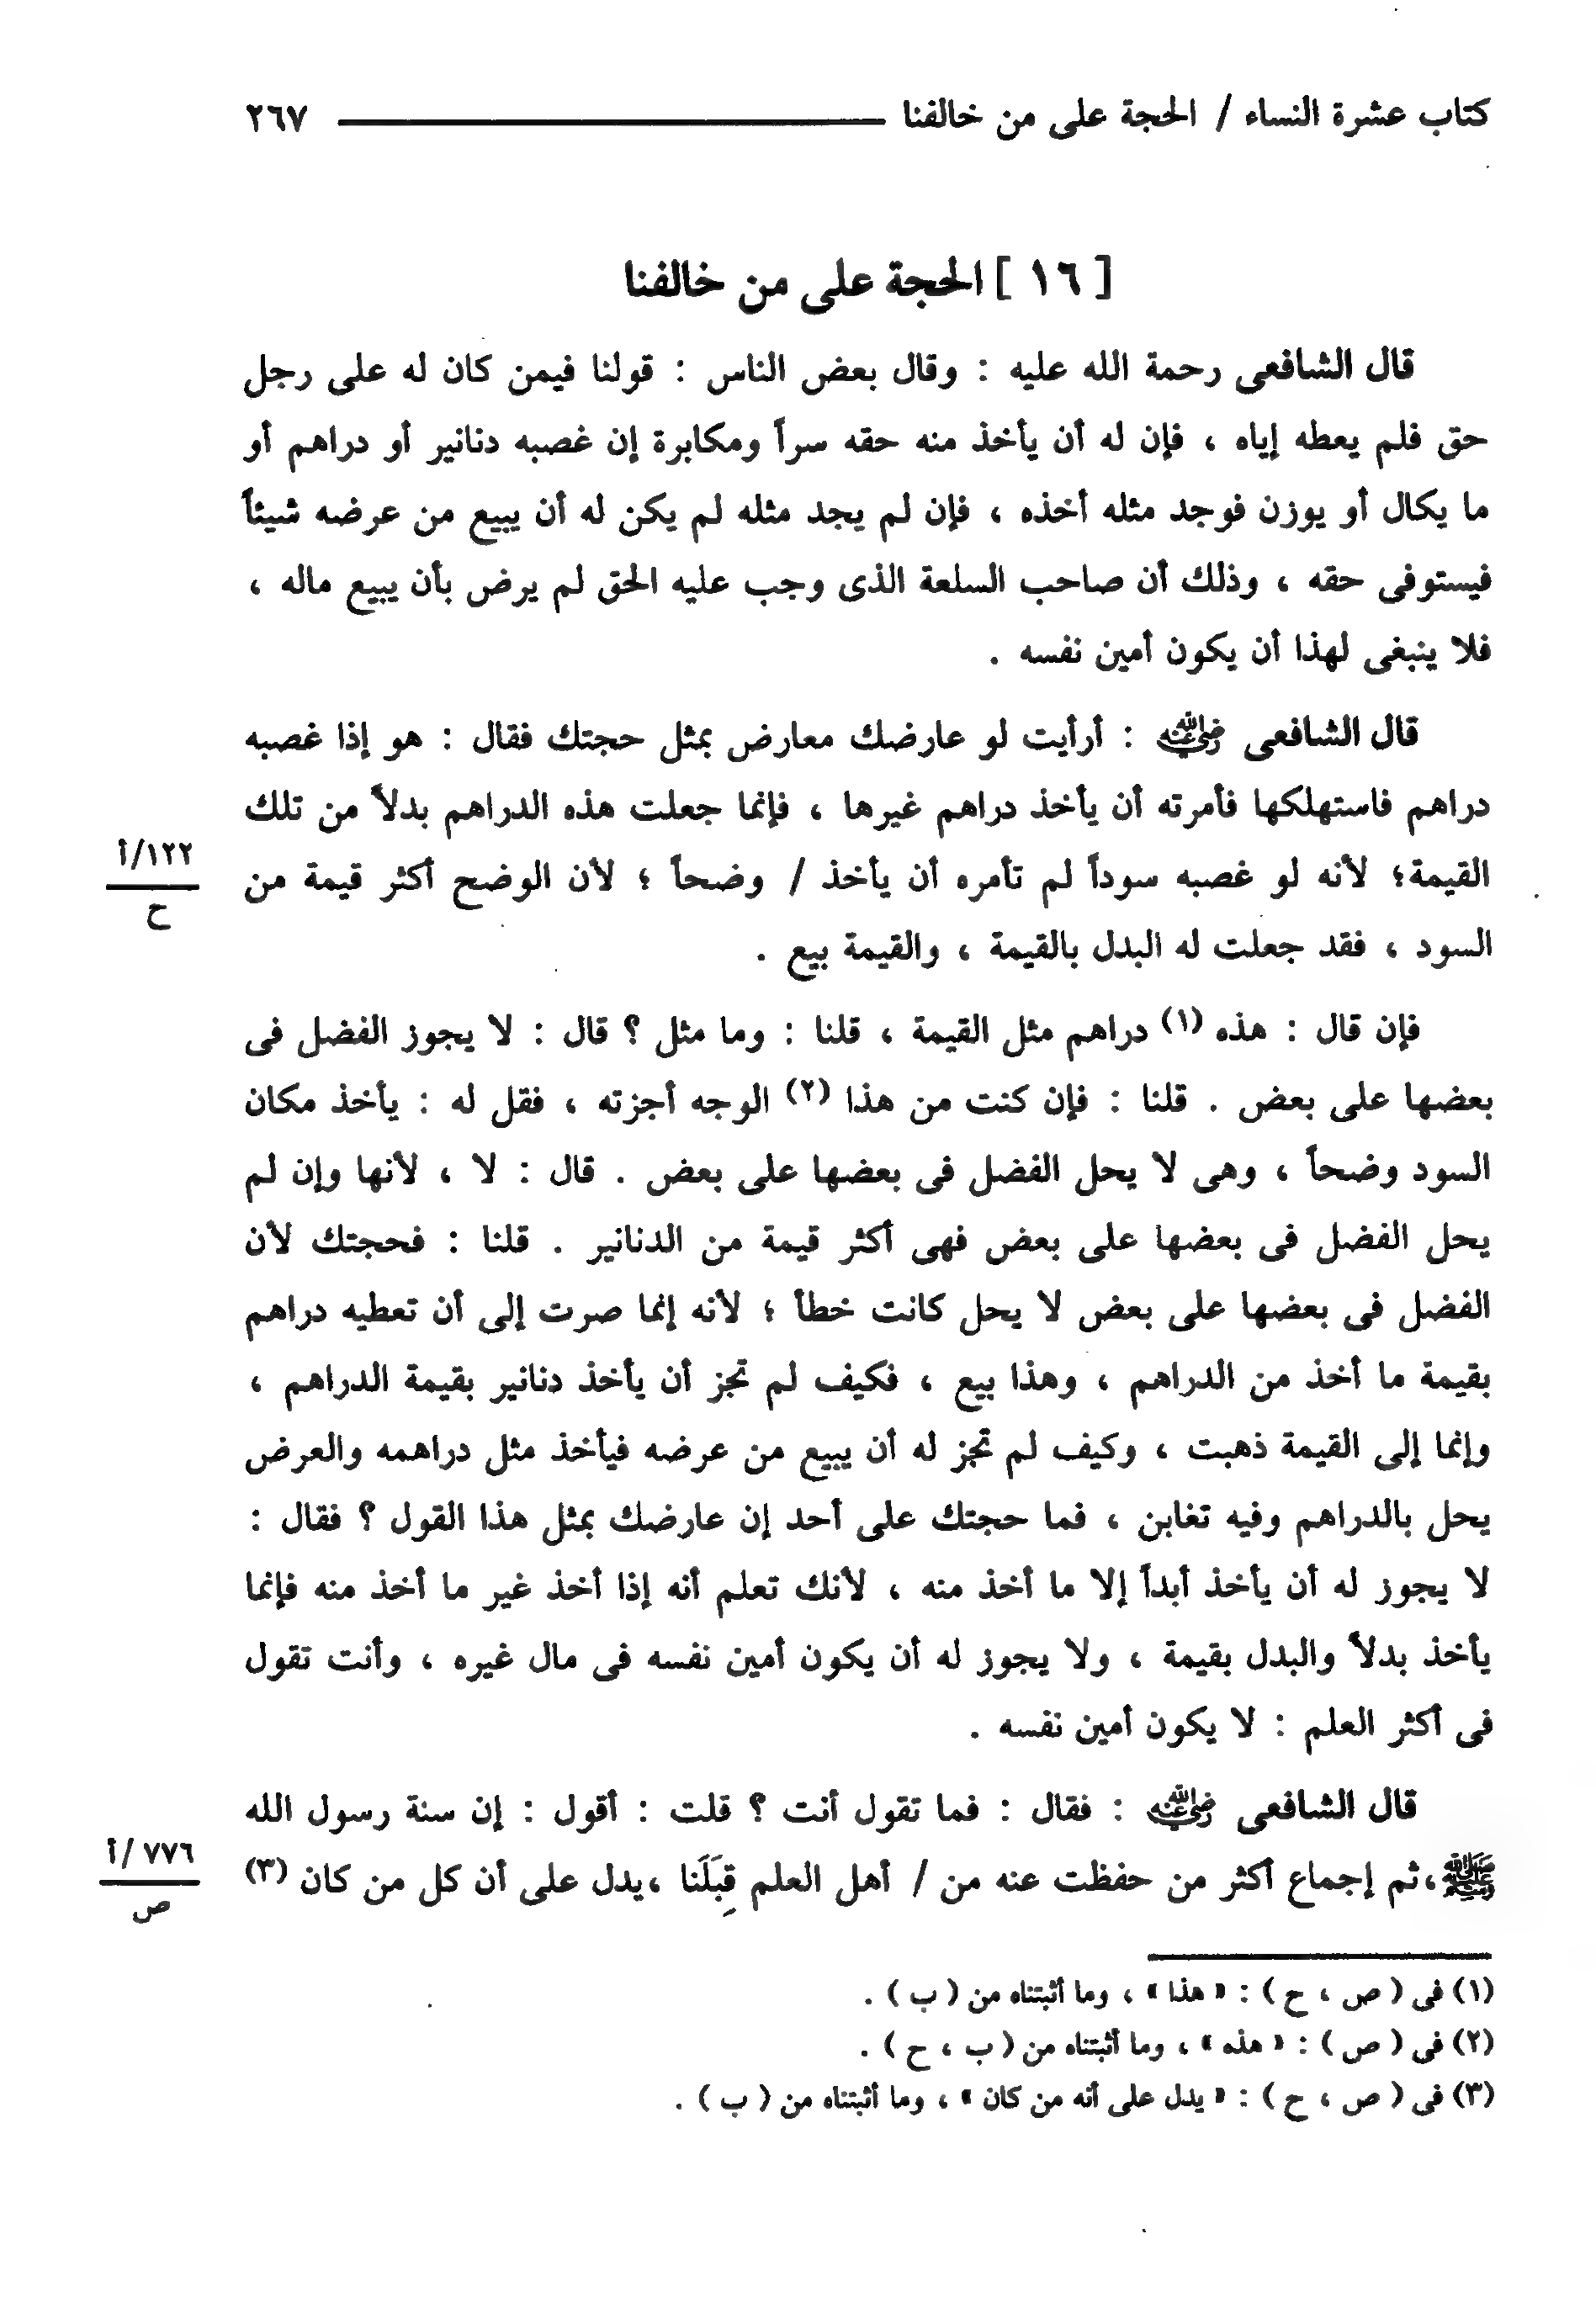 كتاب عشرة النساء / الحجة على من خالفنا ٢٦٧
[ ١٦ ] الحجة على من خالفنا
قال الشافعى رحمة الله عليه : وقال بعض الناس : قولنا فيمن كان له على رجل
حق فلم يعطه إياه ، فإن له أن يأخذ منه حقه سراً ومكابرة إن غصبه دنانير أو دراهم أو
ما يكال أو يوزن فوجد مثله أخذه ، فإن لم يجد مثله لم يكن له أن يبيع من عرضه شيئاً
فيستوفى حقه ، وذلك أن صاحب السلعة الذى وجب عليه الحق لم يرض بأن يبيع ماله ،
فلا ينبغى لهذا أن يكون أمين نفسه .
قال الشافعى رضي الله عنه : أرأيت لو عارضك معارض بمثل حجتك فقال : هو إذا غصبه
دراهم فاستهلكها فأمرته أن يأخذ دراهم غيرها ، فإنما جعلت هذه الدراهم بدلاً من تلك
القيمة؛ لأنه لو غصبه سوداً لم تأمره أن يأخذ / وضحاً ؛ لأن الوضح أكثر قيمة من
١٢٢/أ
ح
السود ، فقد جعلت له البدل بالقيمة ، والقيمة بيع .
فإن قال : هذه (١) دراهم مثل القيمة ، قلنا : وما مثل ؟ قال : لا يجوز الفضل فى
بعضها على بعض . قلنا : فإن كنت من هذا (٢) الوجه أجزته ، فقل له : يأخذ مكان
السود وضحاً ، وهى لا يحل الفضل فى بعضها على بعض . قال : لا ، لأنها وإن لم
يحل الفضل فى بعضها على بعض فهى أكثر قيمة من الدنانير . قلنا : فحجتك لأن
الفضل فى بعضها على بعض لا يحل كانت خطأ ؛ لأنه إنما صرت إلى أن تعطيه دراهم
بقيمة ما أخذ من الدراهم ، وهذا بيع ، فكيف لم تجز أن يأخذ دنانير بقيمة الدراهم ،
وإنما إلى القيمة ذهبت ، وكيف لم تجز له أن يبيع من عرضه فيأخذ مثل دراهمه والعرض
يحل بالدراهم وفيه تغابن ، فما حجتك على أحد إن عارضك بمثل هذا القول ؟ فقال :
لا يجوز له أن يأخذ أبداً إلا ما أخذ منه ، لأنك تعلم أنه إذا أخذ غير ما أخذ منه فإنما
يأخذ بدلاً والبدل بقيمة ، ولا يجوز له أن يكون أمين نفسه فى مال غيره ، وأنت تقول
فى أكثر العلم : لا يكون أمين نفسه .
قال الشافعى رضي الله عنه : فقال : فما تقول أنت ؟ قلت : أقول : إن سنة رسول الله
ﷺ ،ثم إجماع أكثر من حفظت عنه من / أهل العلم قِبَلَنا ،يدل على أن كل من كان (٣)
٧٧٦ /أ
ص
(١) فى ( ص ، ح ) : « هذا » ، وما أثبتناه من ( ب ) .
(٢) فى ( ص ) : « هذه » ، وما أثبتناه من ( ب ، ح ) .
(٣) فى ( ص ، ح ) : « يدل على أنه من كان » ، وما أثبتناه من ( ب ) .